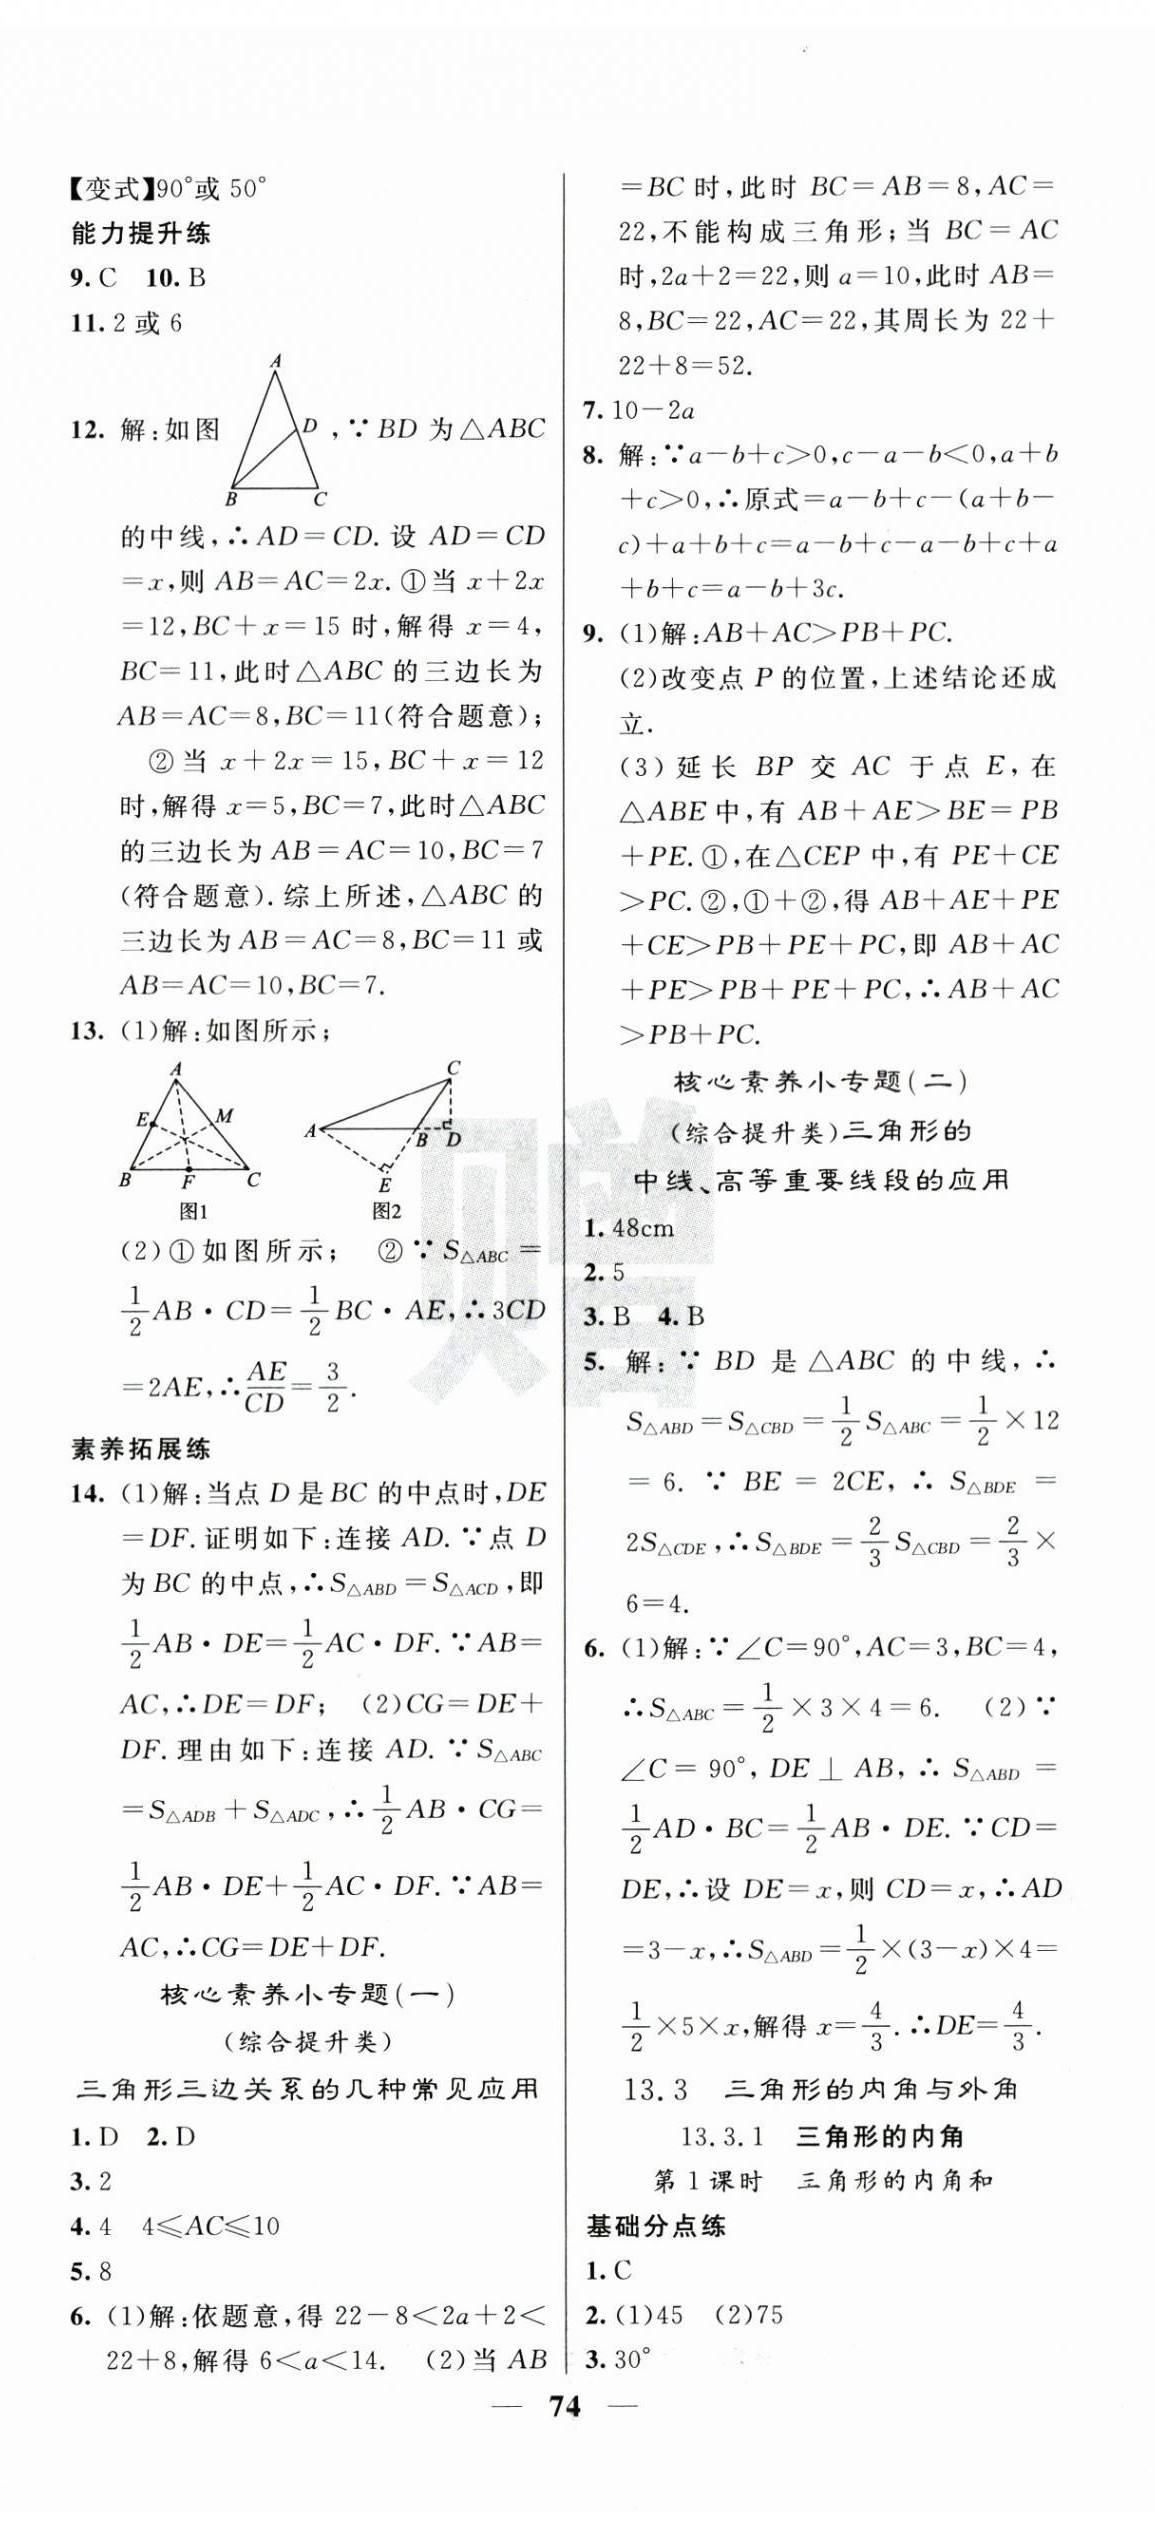 【变式】90°或 50°
能力提升练
9. C 10. B
11. 2 或 6
A
12. 解:如图 D ,∵BD 为△ABC
B C
的中线,∴AD=CD. 设 AD=CD
=x,则 AB=AC=2x. ①当 x+2x
=12,BC+x=15 时,解得 x=4,
BC=11,此时△ABC 的三边长为
AB=AC=8,BC=11(符合题意);
②当 x+2x=15,BC+x=12
时,解得 x=5,BC=7,此时△ABC
的三边长为 AB=AC=10,BC=7
(符合题意). 综上所述,△ABC 的
三边长为 AB=AC=8,BC=11 或
AB=AC=10,BC=7.
13. (1)解:如图所示;
A C
E M A B D
B F C E
图1 图2
(2)①如图所示; ②∵S△ABC=
1/2 AB·CD=1/2 BC·AE,∴3CD
=2AE,∴AE/CD=3/2.
素养拓展练
14. (1)解:当点 D 是 BC 的中点时,DE
=DF. 证明如下:连接 AD. ∵点 D
为 BC 的中点,∴S△ABD=S△ACD,即
1/2 AB·DE=1/2 AC·DF. ∵AB=
AC,∴DE=DF; (2)CG=DE+
DF. 理由如下:连接 AD. ∵S△ABC
=S△ADB+S△ADC,∴1/2 AB·CG=
1/2 AB·DE+1/2 AC·DF. ∵AB=
AC,∴CG=DE+DF.
核心素养小专题(一)
(综合提升类)
三角形三边关系的几种常见应用
1. D 2. D
3. 2
4. 4 4≤AC≤10
5. 8
6. (1)解:依题意,得 22-8<2a+2<
22+8,解得 6<a<14. (2)当 AB
=BC 时,此时 BC=AB=8,AC=
22,不能构成三角形;当 BC=AC
时,2a+2=22,则 a=10,此时 AB=
8,BC=22,AC=22,其周长为 22+
22+8=52.
7. 10-2a
8. 解:∵a-b+c>0,c-a-b<0,a+b
+c>0,∴原式=a-b+c-(a+b-
c)+a+b+c=a-b+c-a-b+c+a
+b+c=a-b+3c.
9. (1)解:AB+AC>PB+PC.
(2)改变点 P 的位置,上述结论还成
立.
(3)延长 BP 交 AC 于点 E,在
△ABE 中,有 AB+AE>BE=PB
+PE. ①,在△CEP 中,有 PE+CE
>PC. ②,①+②,得 AB+AE+PE
+CE>PB+PE+PC,即 AB+AC
+PE>PB+PE+PC,∴AB+AC
>PB+PC.
核心素养小专题(二)
(综合提升类)三角形的
中线、高等重要线段的应用
1. 48cm
2. 5
3. B 4. B
5. 解:∵BD 是△ABC 的中线,∴
S△ABD=S△CBD=1/2 S△ABC=1/2×12
=6. ∵BE=2CE,∴S△BDE=
2S△CDE,∴S△BDE=2/3 S△CBD=2/3×
6=4.
6. (1)解:∵∠C=90°,AC=3,BC=4,
∴S△ABC=1/2×3×4=6. (2)∵
∠C=90°,DE⊥AB,∴S△ABD=
1/2 AD·BC=1/2 AB·DE. ∵CD=
DE,∴设 DE=x,则 CD=x,∴AD
=3-x,∴S△ABD=1/2×(3-x)×4=
1/2×5×x,解得 x=4/3. ∴DE=4/3.
13.3 三角形的内角与外角
13.3.1 三角形的内角
第 1 课时 三角形的内角和
基础分点练
1. C
2. (1)45 (2)75
3. 30°
— 74 —